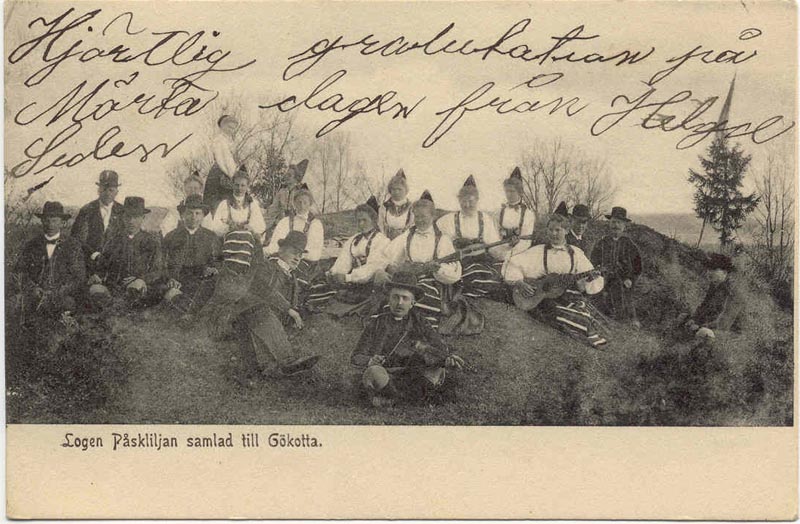 Hjärtlig gratulation på
Märta dagen från Helgse
Seden
Logen Påskliljan samlad till Gökotta.